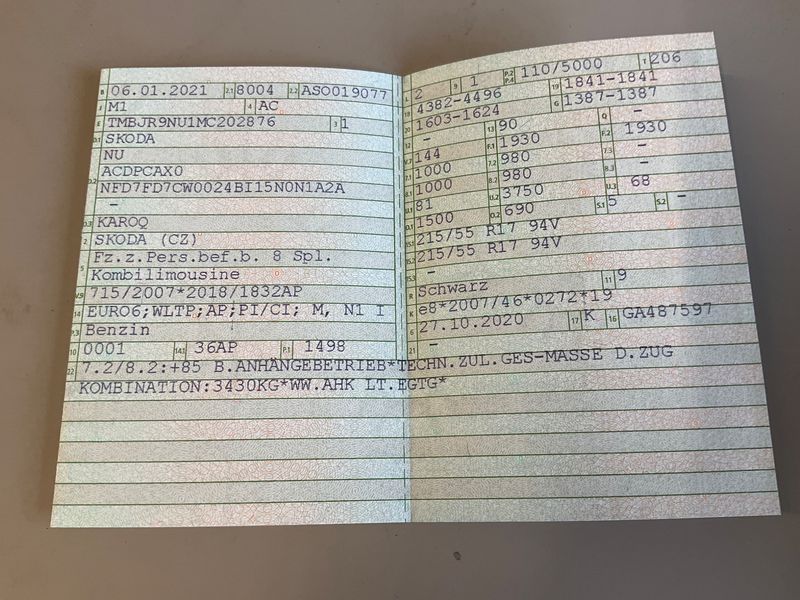 B 06.01.2021 2.1 8004 2.2 ASO019077
J M1 4 AC
E TMBJR9NU1MC202876 3 1
D.1 SKODA
NU
D.2 ACDPCAX0
NFD7FD7CW0024BI15N0N1A2A
–
D.3 KAROQ
2 SKODA (CZ)
5 Fz.z.Pers.bef.b. 8 Spl.
Kombilimousine
V.9 715/2007*2018/1832AP
14 EURO6;WLTP;AP;PI/CI; M, N1 I
P.3 Benzin
10 0001 14.1 36AP P.1 1498
22 7.2/8.2:+85 B.ANHÄNGEBETRIEB*TECHN.ZUL.GES-MASSE D.ZUG
KOMBINATION:3430KG*WW.AHK LT.EGTG*
L 2 9 1 P.2 P.4 110/5000 T 206
18 4382-4496 19 1841-1841
20 1603-1624 G 1387-1387
12 – 13 90 Q –
V.7 144 F.1 1930 F.2 1930
7.1 1000 7.2 980 7.3 –
8.1 1000 8.2 980 8.3 –
U.1 81 U.2 3750 U.3 68
O.1 1500 O.2 690 S.1 5 S.2 –
15.1 215/55 R17 94V
15.2 215/55 R17 94V
15.3 –
R Schwarz 11 9
K e8*2007/46*0272*19
6 27.10.2020 17 K 16 GA487597
21 –